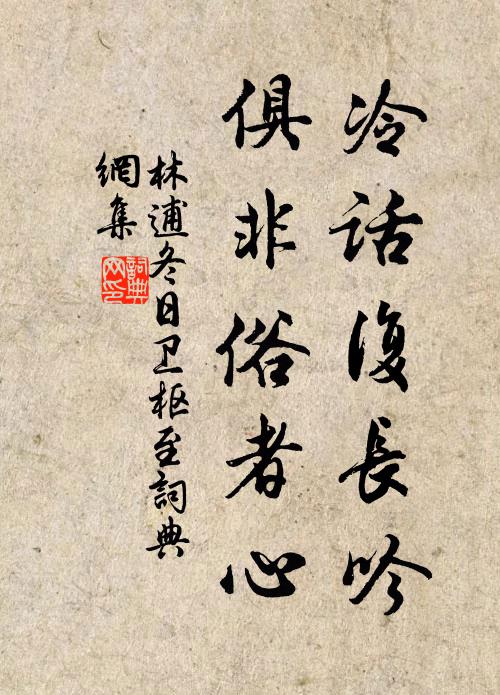 冷话復長吟
俱非俗者心
林逋冬日卫枢至詞典
網集
詞典
网印